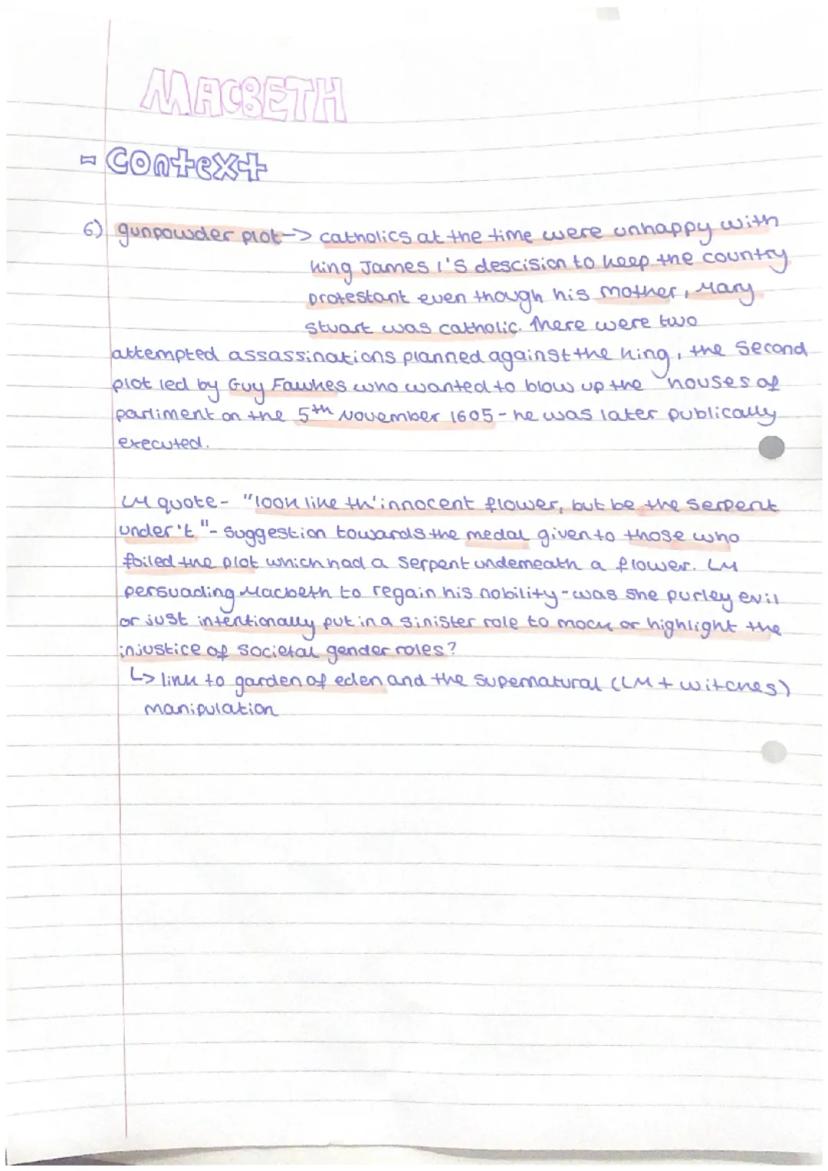 MACBETH
- Context
6) gunpowder plot -> catholics at the time were unhappy with
king James 1's descision to keep the country
protestant even though his mother, Mary
stuart was catholic. There were two
attempted assassinations planned against the king, the second
plot led by Guy Fawkes who wanted to blow up the houses of
parliment on the 5th November 1605 - he was later publically
executed.
LM quote - "look like th'innocent flower, but be the serpent
under't" - suggestion towards the medal given to those who
foiled the plot which had a serpent underneath a flower. LM
persuading Macbeth to regain his nobility - was she purley evil
or just intentionally put in a sinister role to mock or highlight the
injustice of societal gender roles?
↳ link to garden of eden and the supernatural (LM + witches)
manipulation